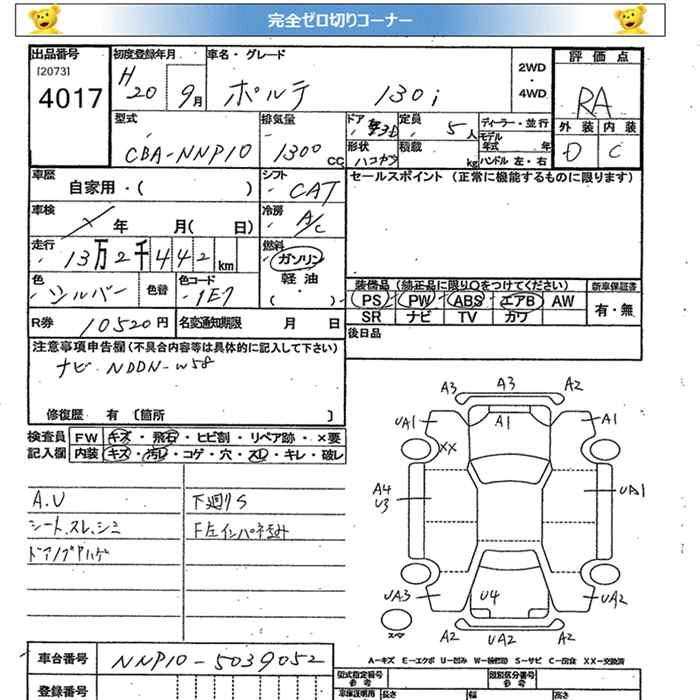 完全ゼロ切りコーナー
出品番号 初度登録年月 車名・グレード 評価点
[2073] H 20 9月 ポルテ 130i 2WD・4WD RA
4017
外装 内装
D C
型式 排気量 ドア 定員 ディーラー・並行
CBA-NNP10 1300 CC 5人 モデル年式 年
形状 積載
ハコガタ kg ハンドル 左・右
車歴 シフト セールスポイント(正常に機能するものに限ります)
自家用・( ) CAT
車検 冷房
年 月(日) A/C
走行 燃料
13万2千442km ガソリン
軽油
( )
色 色替 色コード
シルバー 1E7
装備品(純正品に限り○をつけてください) 新車保証書
PS PW ABS エアB AW 有・無
SR ナビ TV カワ
R券 10520円 名変通知期限 月 日
後日品
注意事項申告欄(不具合内容等は具体的に記入して下さい)
ナビ NDDN-W58
修復歴 有 〔箇所 〕
検査員 FW キズ・飛石・ヒビ割・リペア跡・×要
記入欄 内装 キズ・汚レ・コゲ・穴・スレ・キレ・破レ
A.U 下廻りS
シート,スレ,シミ F左インパネ歪み
ドアノブハゲ
A3 A3 A2
UA1 A1 A1
XX
A4
U3 UA1
UA3 U4 UA2
A2 UA2 A2
スペア
A-キズ E-エクボ U-凹み W-補修跡 S-サビ C-腐食 XX-交換済
車台番号 NNP10-5039052
型式指定番号 参考 類別区分番号 参考
登録番号 車庫証明用 長さ 幅 高さ